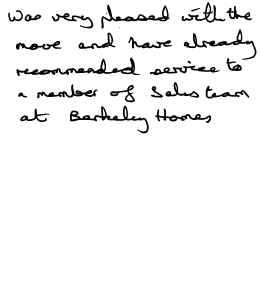 Was very pleased with the
move and have already
recommended service to
a member of Sales team
at Berkeley Homes